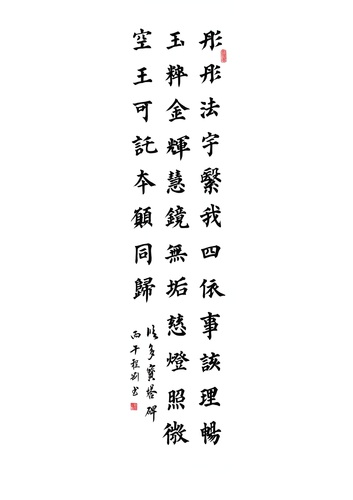 彤彤法宇繫我四依事該理暢
玉粹金輝慧鏡無垢慈燈照微
空王可託本願同歸
臨多寶塔碑
丙午程剛書